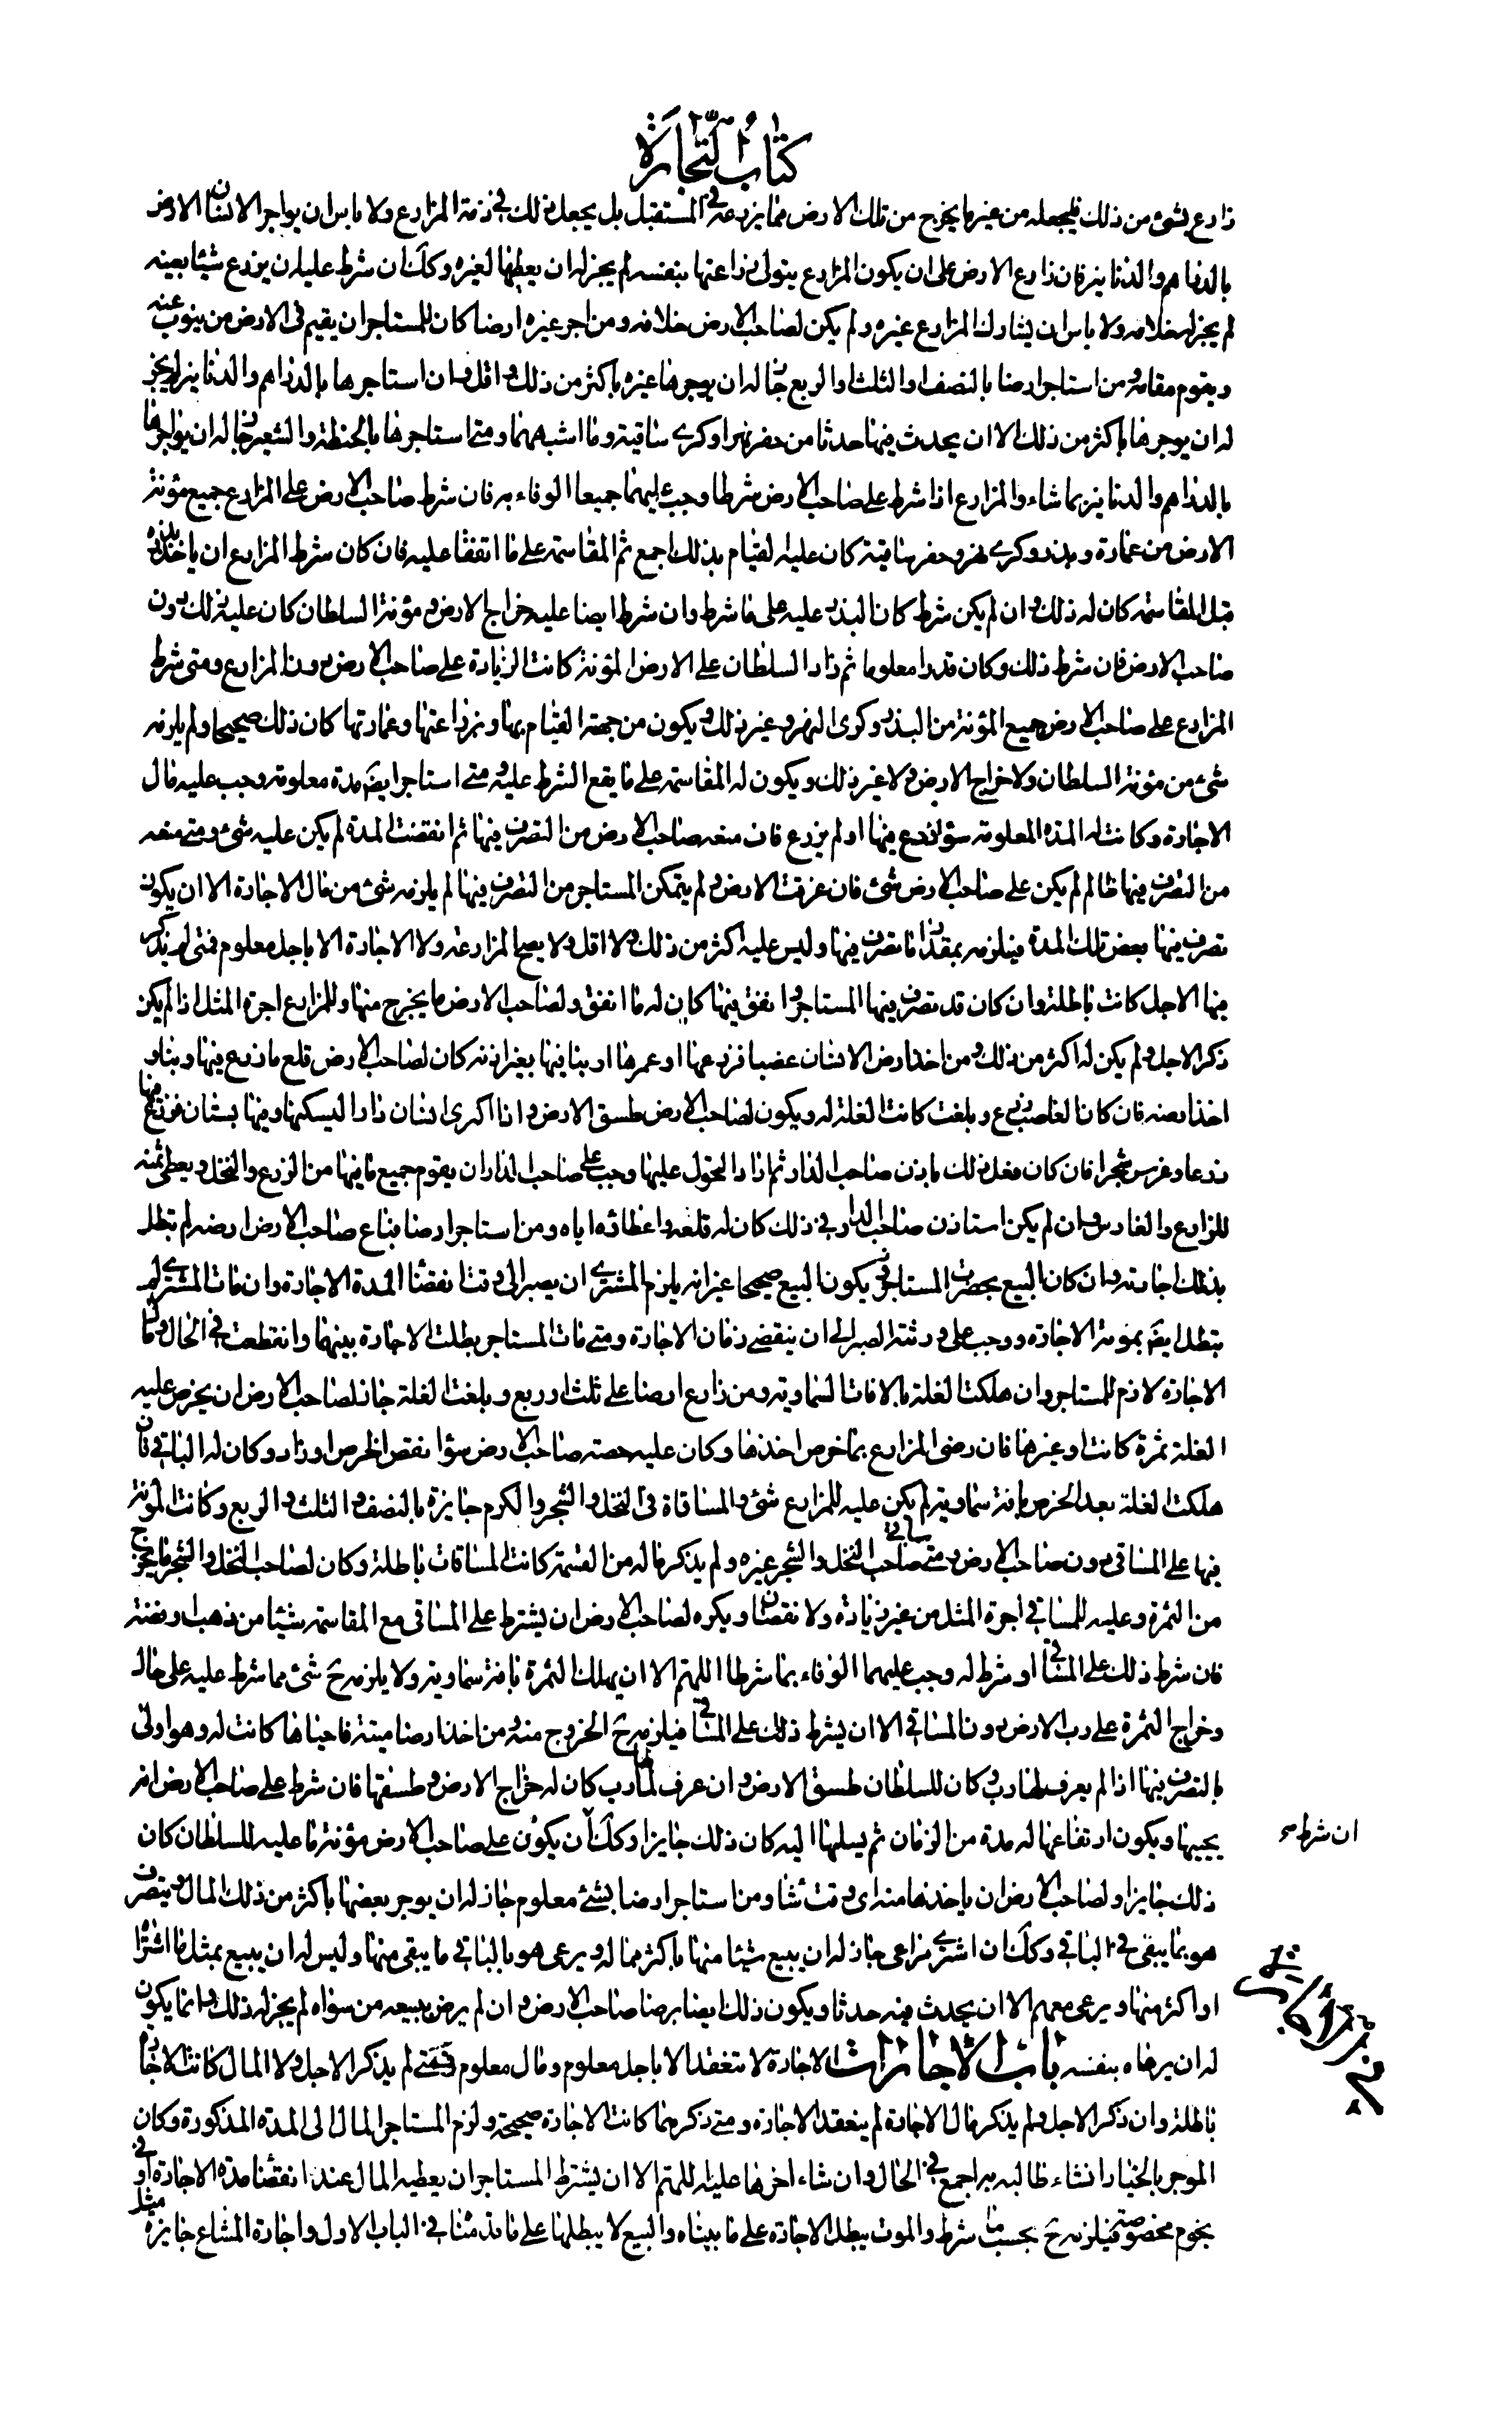 كتاب التجارة
زارع بشئ من ذلك فليجعله من غير ما يخرج من تلك الارض مما يزرعه في المستقبل بل يجعل ذلك في ذمة المزارع ولا باس ان يواجر الانسان الارض
بالدراهم والدنانير فان زارع الارض على ان يكون المزارع يتولى زراعتها بنفسه لم يجز له ان يعطيها لغيره وكك ان شرط عليه ان يزرع شيئا بعينه
لم يجز له خلافه ولا باس ان يشارك المزارع غيره ولم يكن لصاحب الارض خلافه ومن اجر غيره ارضا كان للمستاجر ان يقيم في الارض من ينوب عنه
ويقوم مقامه ومن استاجر ارضا بالنصف او الثلث او الربع جاز له ان يوجرها غيره باكثر من ذلك واقل وان استاجرها بالدراهم والدنانير لم يجز
له ان يوجرها باكثر من ذلك الا ان يحدث فيها حدثا من حفر نهر او كرى ساقية وما اشبههما ومتى استاجرها بالحنطة والشعير جاز له ان يواجرها
بالدراهم والدنانير بما شاء والمزارع اذا شرط على صاحب الارض شرطا وجب عليهما جميعا الوفاء به فان شرط صاحب الارض على المزارع جميع مؤنة
الارض من عمارة وبذر وكرى نهر وحفر ساقية كان عليه القيام بذلك اجمع ثم المقاسمة على ما اتفقا عليه فان كان شرط المزارع ان ياخذ بذره
قبل المقاسمة كان له ذلك وان لم يكن شرط كان البذر عليه على ما شرط وان شرط ايضا عليه خراج الارض ومؤنة السلطان كان عليه ذلك دون
صاحب الارض فان شرط ذلك وكان قدرا معلوما ثم زاد السلطان على الارض المؤنة كانت الزيادة على صاحب الارض دون المزارع ومتى شرط
المزارع على صاحب الارض جميع المؤنة من البذر وكرى النهر وغير ذلك ويكون من جهته القيام بها وبزراعتها وعمارتها كان ذلك صحيحا ولم يلزمه
شئ من مؤنة السلطان ولا خراج الارض ولا غير ذلك ويكون له المقاسمة على ما يقع الشرط عليه ومتى استاجر ارضا مدة معلومة وجب عليه مال
الاجارة وكانت له المدة المعلومة سواء زرع فيها او لم يزرع فان منعه صاحب الارض من التصرف فيها ثم انقضت المدة لم يكن عليه شئ ومتى منعه
من التصرف فيها ظالم لم يكن على صاحب الارض شئ فان غرقت الارض ولم يتمكن المستاجر من التصرف فيها لم يلزمه شئ من مال الاجارة الا ان يكون
تصرف فيها بعض تلك المدة فيلزمه بمقدار ما تصرف فيها وليس عليه اكثر من ذلك ولا اقل ولا يصح المزارعة ولا الاجارة الا باجل معلوم فمتى لم يذكر
فيها الاجل كانت باطلة وان كان قد تصرف فيها المستاجر او انفق فيها كان له ما انفق ولصاحب الارض ما يخرج منها وللمزارع اجرة المثل اذا لم يكن
ذكر الاجل ولم يكن له اكثر من ذلك ومن اخذ ارض الانسان غصبا فزرعها او عمرها او بنا فيها بغير اذنه كان لصاحب الارض قلع ما زرع فيها وبناو
اخذ ارضه فان كان الغاصب زرع وبلغت كانت الغلة له ويكون لصاحب الارض طسق الارض واذا اكرى انسان دارا ليسكنها وفيها بستان فزرع فيها
زرعا وغرس شجرا فان كان فعل ذلك باذن صاحب الدار ثم اراد التحول عليها وجب على صاحب الدار ان يقوم جميع ما فيها من الزرع والنخل ويعطى ثمنه
للزارع والغارس وان لم يكن استاذن صاحب الدار في ذلك كان له قلعه واعطائه اياه ومن استاجر ارضا فباع صاحب الارض ارضه لم تبطل
بذلك اجارته وان كان البيع بحضرة المستاجر يكون البيع صحيحا غير انه يلزم المشتري ان يصبر الى وقت انقضاء المدة الاجارة وان مات المشتري لم
يبطل ايضا بموته الاجارة ووجب على ورثته الصبر الى ان ينقضى زمان الاجارة ومتى مات المستاجر بطلت الاجارة بينهما وانقطعت في الحال ومال
الاجارة لازم للمستاجر وان هلكت الغلة بالافات السماوية ومن زارع ارضا على ثلث او ربع وبلغت الغلة جاز لصاحب الارض ان يخرص عليه
الغلة ثمرة كانت او غيرها فان رضى المزارع بما خرص اخذها وكان عليه حصته صاحب الارض سواء نقص الخرص او زاد وكان له الباقي فان
هلكت الغلة بعد الخرص بافة سماوية لم يكن عليه للمزارع شئ والمساقاة في النخل والشجر والكرم جايزة بالنصف والثلث والربع وكانت المؤنة
فيها على المساقي دون صاحب الارض ومتى ساقى صاحب النخل والشجر غيره ولم يذكر ماله من القسمة كانت المساقات باطلة وكان لصاحب النخل والشجر ما يخرج
من الثمرة وعليه للمساقي اجرة المثل من غير زيادة ولا نقصان ويكره لصاحب الارض ان يشترط على المساقي مع المقاسمة شيئا من ذهب او فضة
فان شرط ذلك على المساقي او شرط له وجب عليهما الوفاء بما شرطا اللهم الا ان يهلك الثمرة بافة سماوية ولا يلزمه ح شئ مما شرط عليه على حال
وخراج الثمرة على رب الارض دون المساقي الا ان يشرط ذلك على المساقي فيلزمه ح الخروج منه ومن اخذ ارضا ميتة فاحياها كانت له وهو اولى
بالتصرف فيها اذا لم يعرف لها رب وكان للسلطان طسق الارض وان عرف لها رب كان له خراج الارض وطسقها فان شرط على صاحب الارض انه
يحييها ويكون ارتفاعها له مدة من الزمان ثم يسلمها اليه كان ذلك جايزا وكك ان يكون على صاحب الارض مؤنة ما عليه للسلطان كان
ان شرط
ذلك جايزا ولصاحب الارض ان ياخذها منه اي وقت شاء ومن استاجر ارضا بشئ معلوم جاز له ان يوجر بعضها باكثر من ذلك المال ويتصرف
هو بما يبقى في الباقي وكك ان اشترى مراعى جاز له ان يبيع شيئا منها باكثر مما له ويرعى هو بالباقي ما يبقى منها وليس له ان يبيع بمثل ما اشتراه
او اكثر منها ويرعى معهم الا ان يحدث فيه حدثا ويكون ذلك ايضا برضا صاحب الارض وان لم يرض ببيعه من سواه لم يجز له ذلك وانما يكون
له ان يرعاه بنفسه باب الاجارات الاجارة لا تنعقد الا باجل معلوم ومال معلوم فمتى لم يذكر الاجل ولا المال كانت الاجارة
باطلة وان ذكر الاجل ولم يذكر مال الاجارة لم ينعقد الاجارة ومتى ذكرهما كانت الاجارة صحيحة ولزم المستاجر المال الى المدة المذكورة وكان
الموجر بالخيار ان شاء طالبه به اجمع في الحال وان شاء اخرها عليه اللهم الا ان يشترط المستاجر ان يعطيه المال عند انقضاء مدة الاجارة او في
نجوم مخصوصة فيلزمه ح بحسب ما شرط والموت يبطل الاجارة على ما بيناه والبيع لا يبطلها على ما قدمناه في الباب الاول واجارة المشاع جايزة مثل